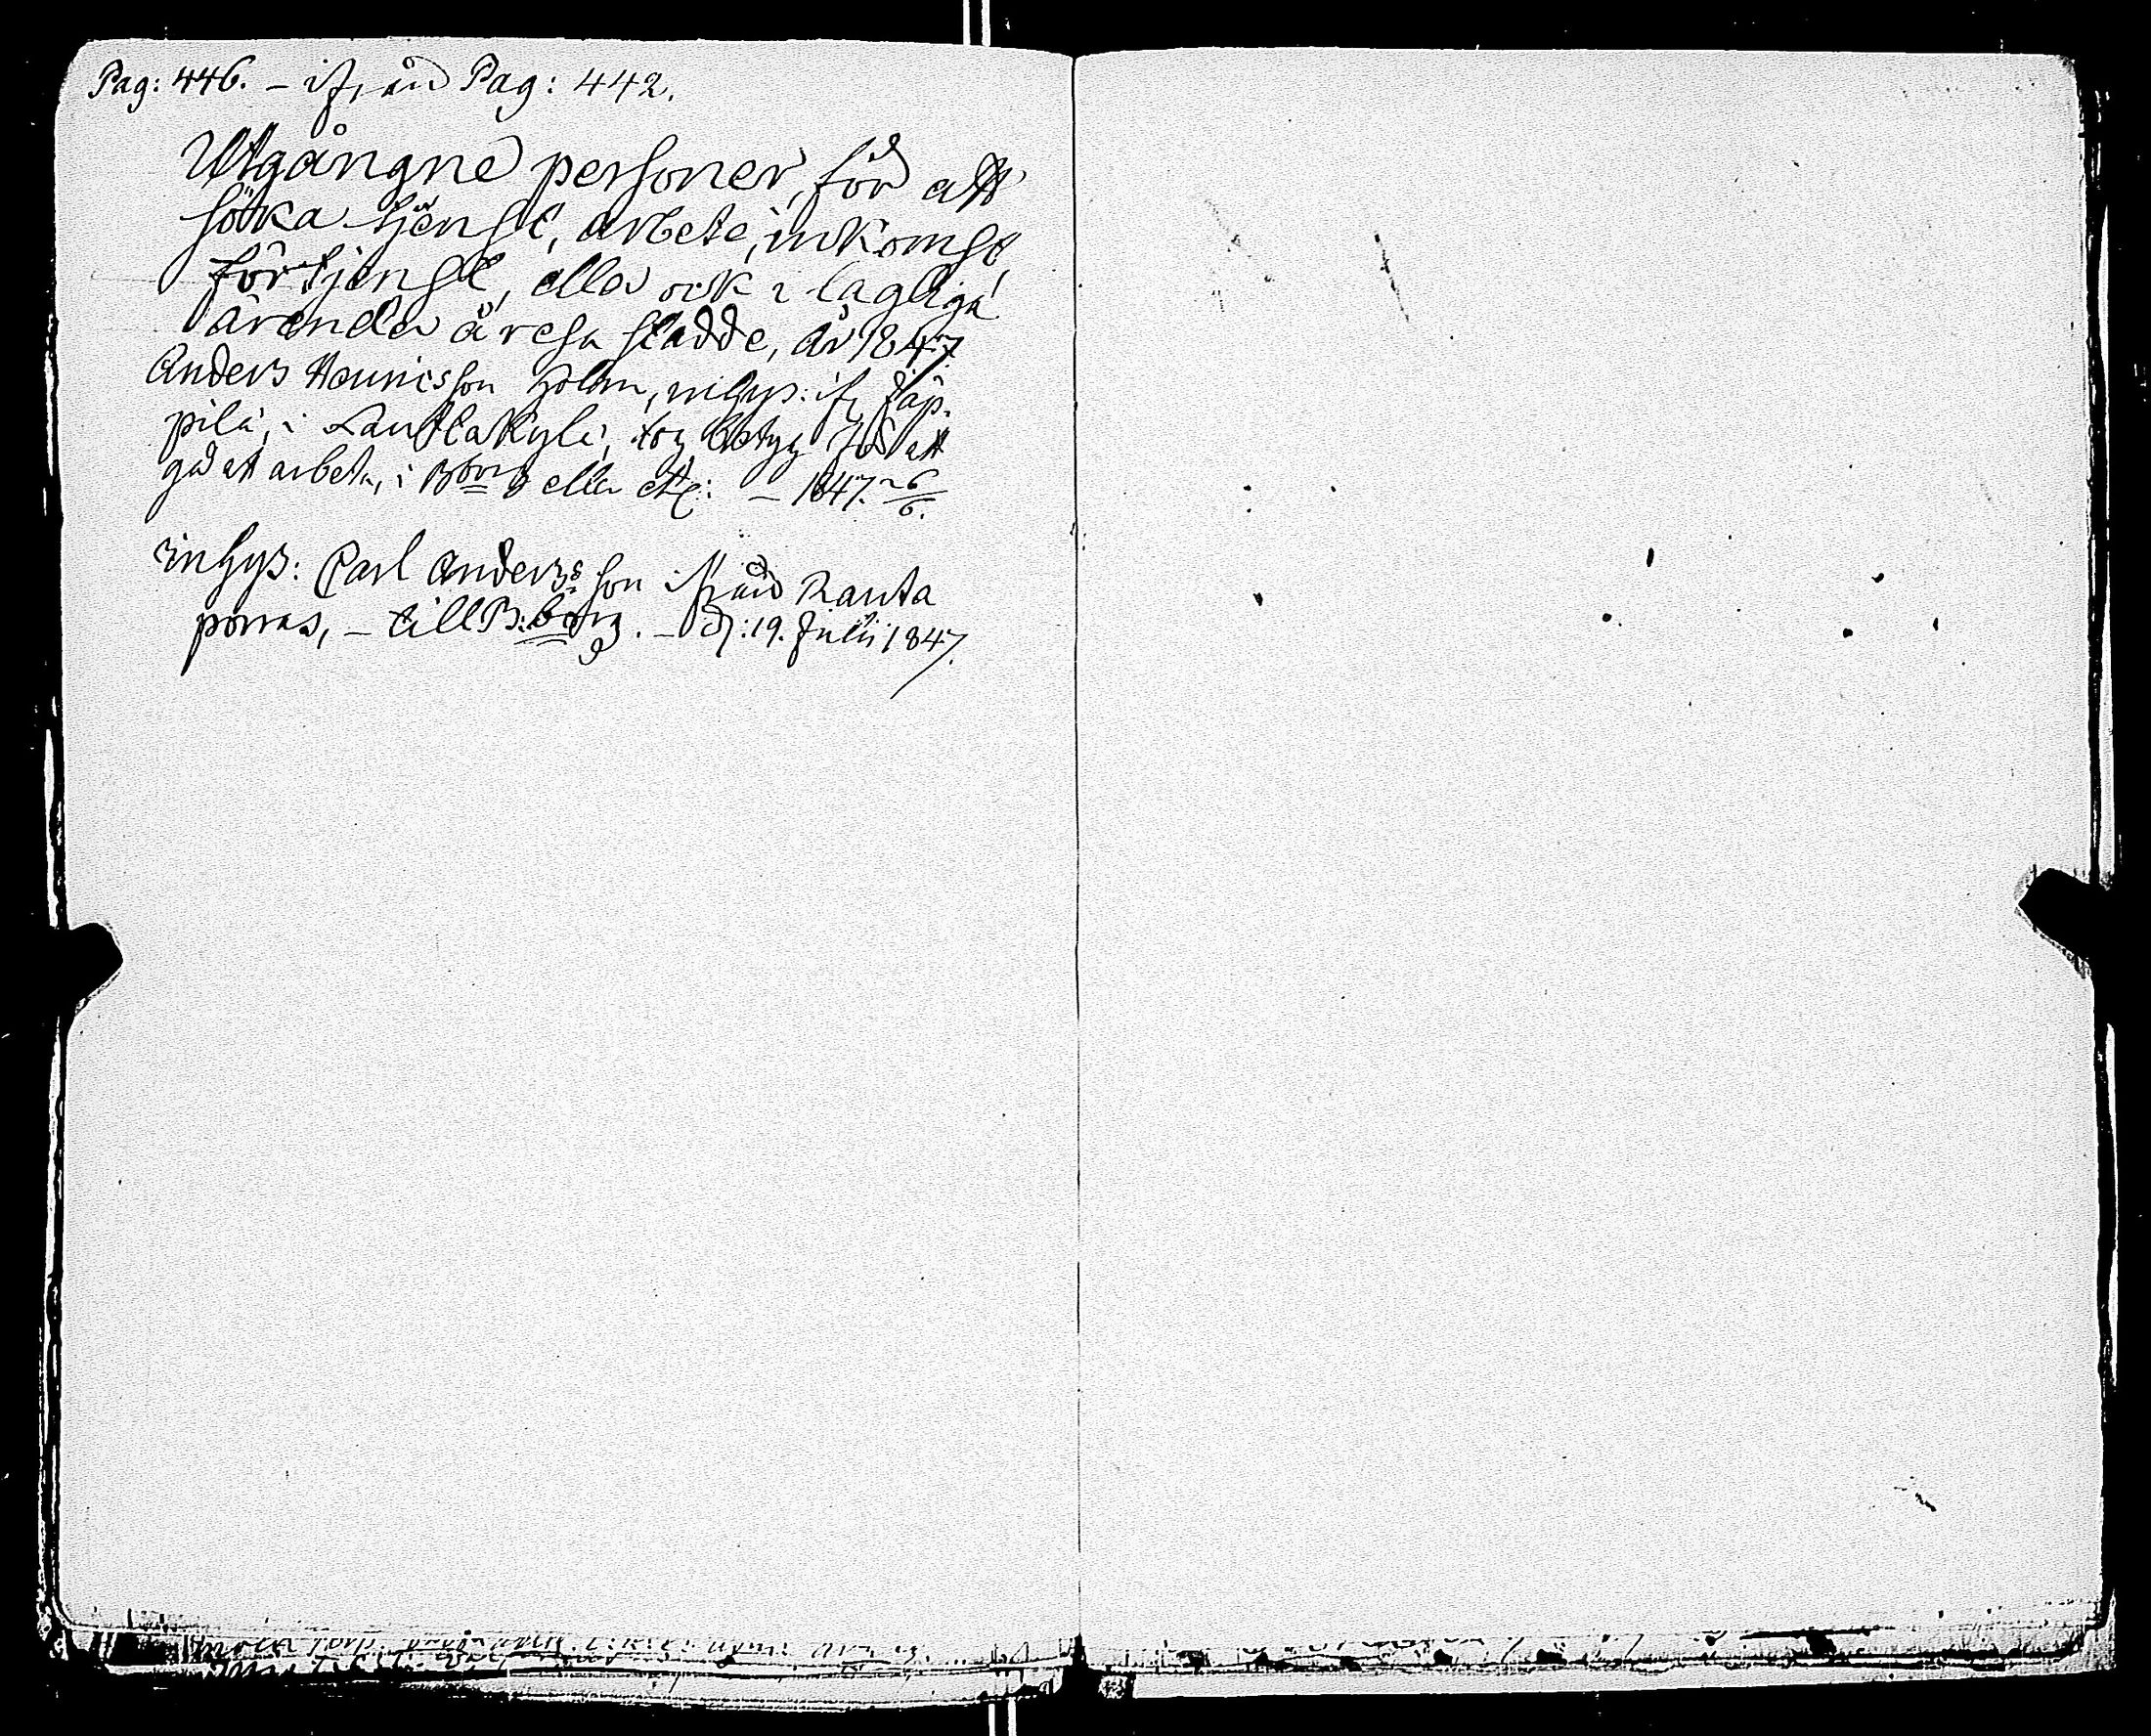 Pag: 446. – ifrån Pag: 442.
Utgångne personer, för att
söka tjenst, arbete, inkomst,
förtjenst, eller ock i lagliga
ärenden å resa stadde, år 1847.
Anders Henricsson Holm, inhys: ifr
pilä, i Lauttakylä, tog betyg att
gå att arbeta, i B:borg eller etc: – 1847. 26/6.
inhys: Carl Andersson ifrån Ranta
porras, – till B:borg. – d: 19. Julii 1847.